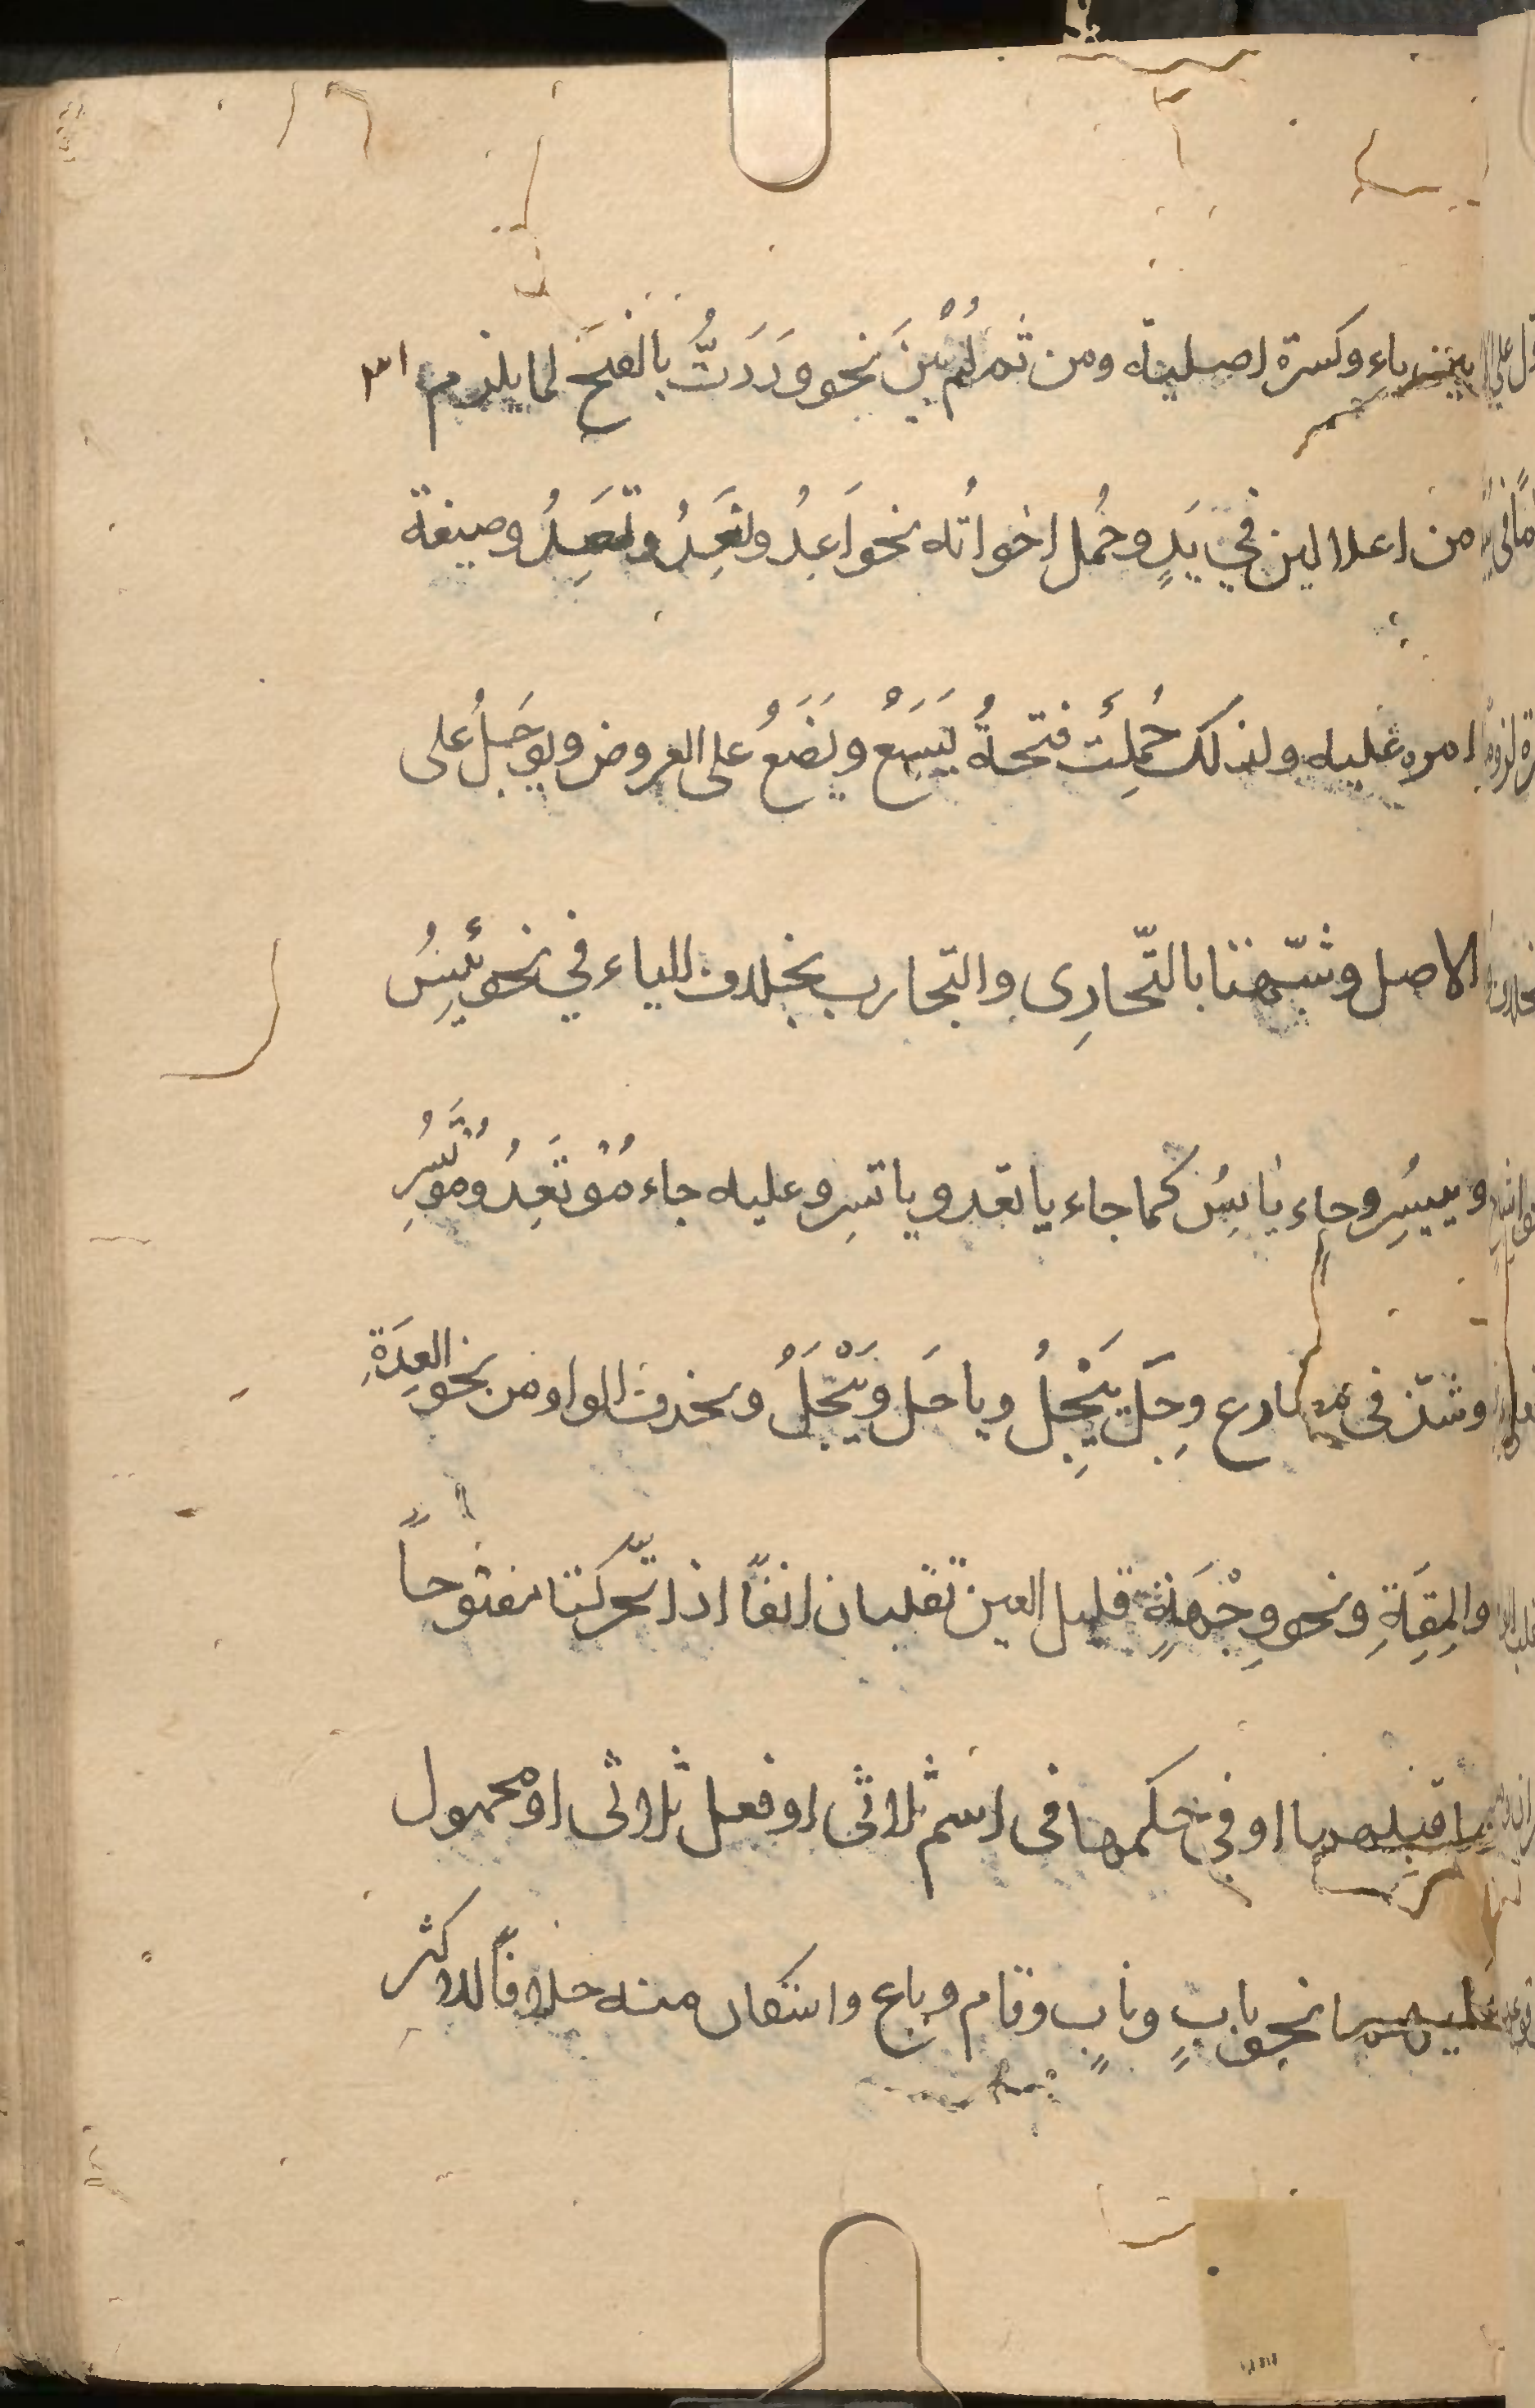 بين ياء وكسرة اصلية ومن ثم لم يُبْنَ نحو وَدَدَتُّ بالفتح لما يلزم
من اعلالين في يَدٍ وحُمل اخواتُه نحو اَعِدُ ونَعِدُ وتَعِدُ وصيغة
امره عليه ولذلك حُمِلَت فتحةُ يَسَعُ ويَضَعُ على العروض ويوجَلُ على
الاصل وشبّهتا بالتّجارِى والتجارب بخلاف الياء في نحو يَئِسُ
وييسِرُ وجاء يائِسُ كما جاء ياتعد وياتسِر وعليه جاء مُوْتَعِدُ ومُوتَسِرُ
وشذّ فى مضارع وجِلَ يَيْجِلُ وياجَل ويَيْجَلُ وتحذف الواو من نحو العِدَةِ
والمِقَةِ ونحو وِجْهَةٍ قليل العين تقلبان الفًا اذا تحّركتا مفتوحاً
ما قبلهما او فى حكمها فى اسم ثلاثى او فعل ثلاثى او محمول
عليهما نحو بابٍ ونابٍ وقام وباع واستكان منه خلافًا للاكثر